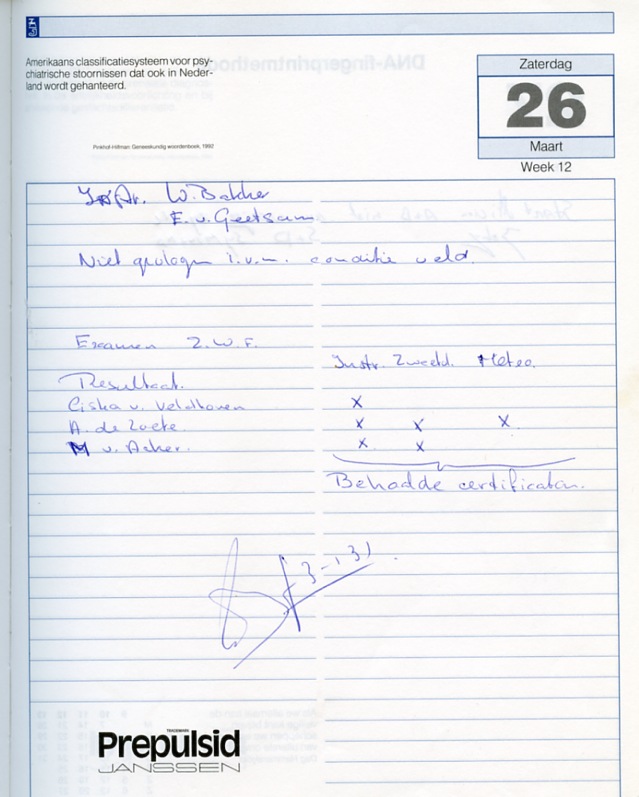 Amerikaans classificatiesysteem voor psy-
chiatrische stoornissen dat ook in Neder-
land wordt gehanteerd.
Pinkhof-Hilfman Geneeskundig woordenboek, 1992
Zaterdag
26
Maart
Week 12
W. Bakker
E. v. Geetsam
Niet gevlogen i.v.m. conditie veld.
Examen Z.W.F.
Instr. Zweetd. Meteo.
Resultaat.
Ciska v. Veldhoven x
A. de Zoete. x x x
M v. Acker. x x
Behaalde certificaten.
TRADEMARK
Prepulsid
JANSSEN